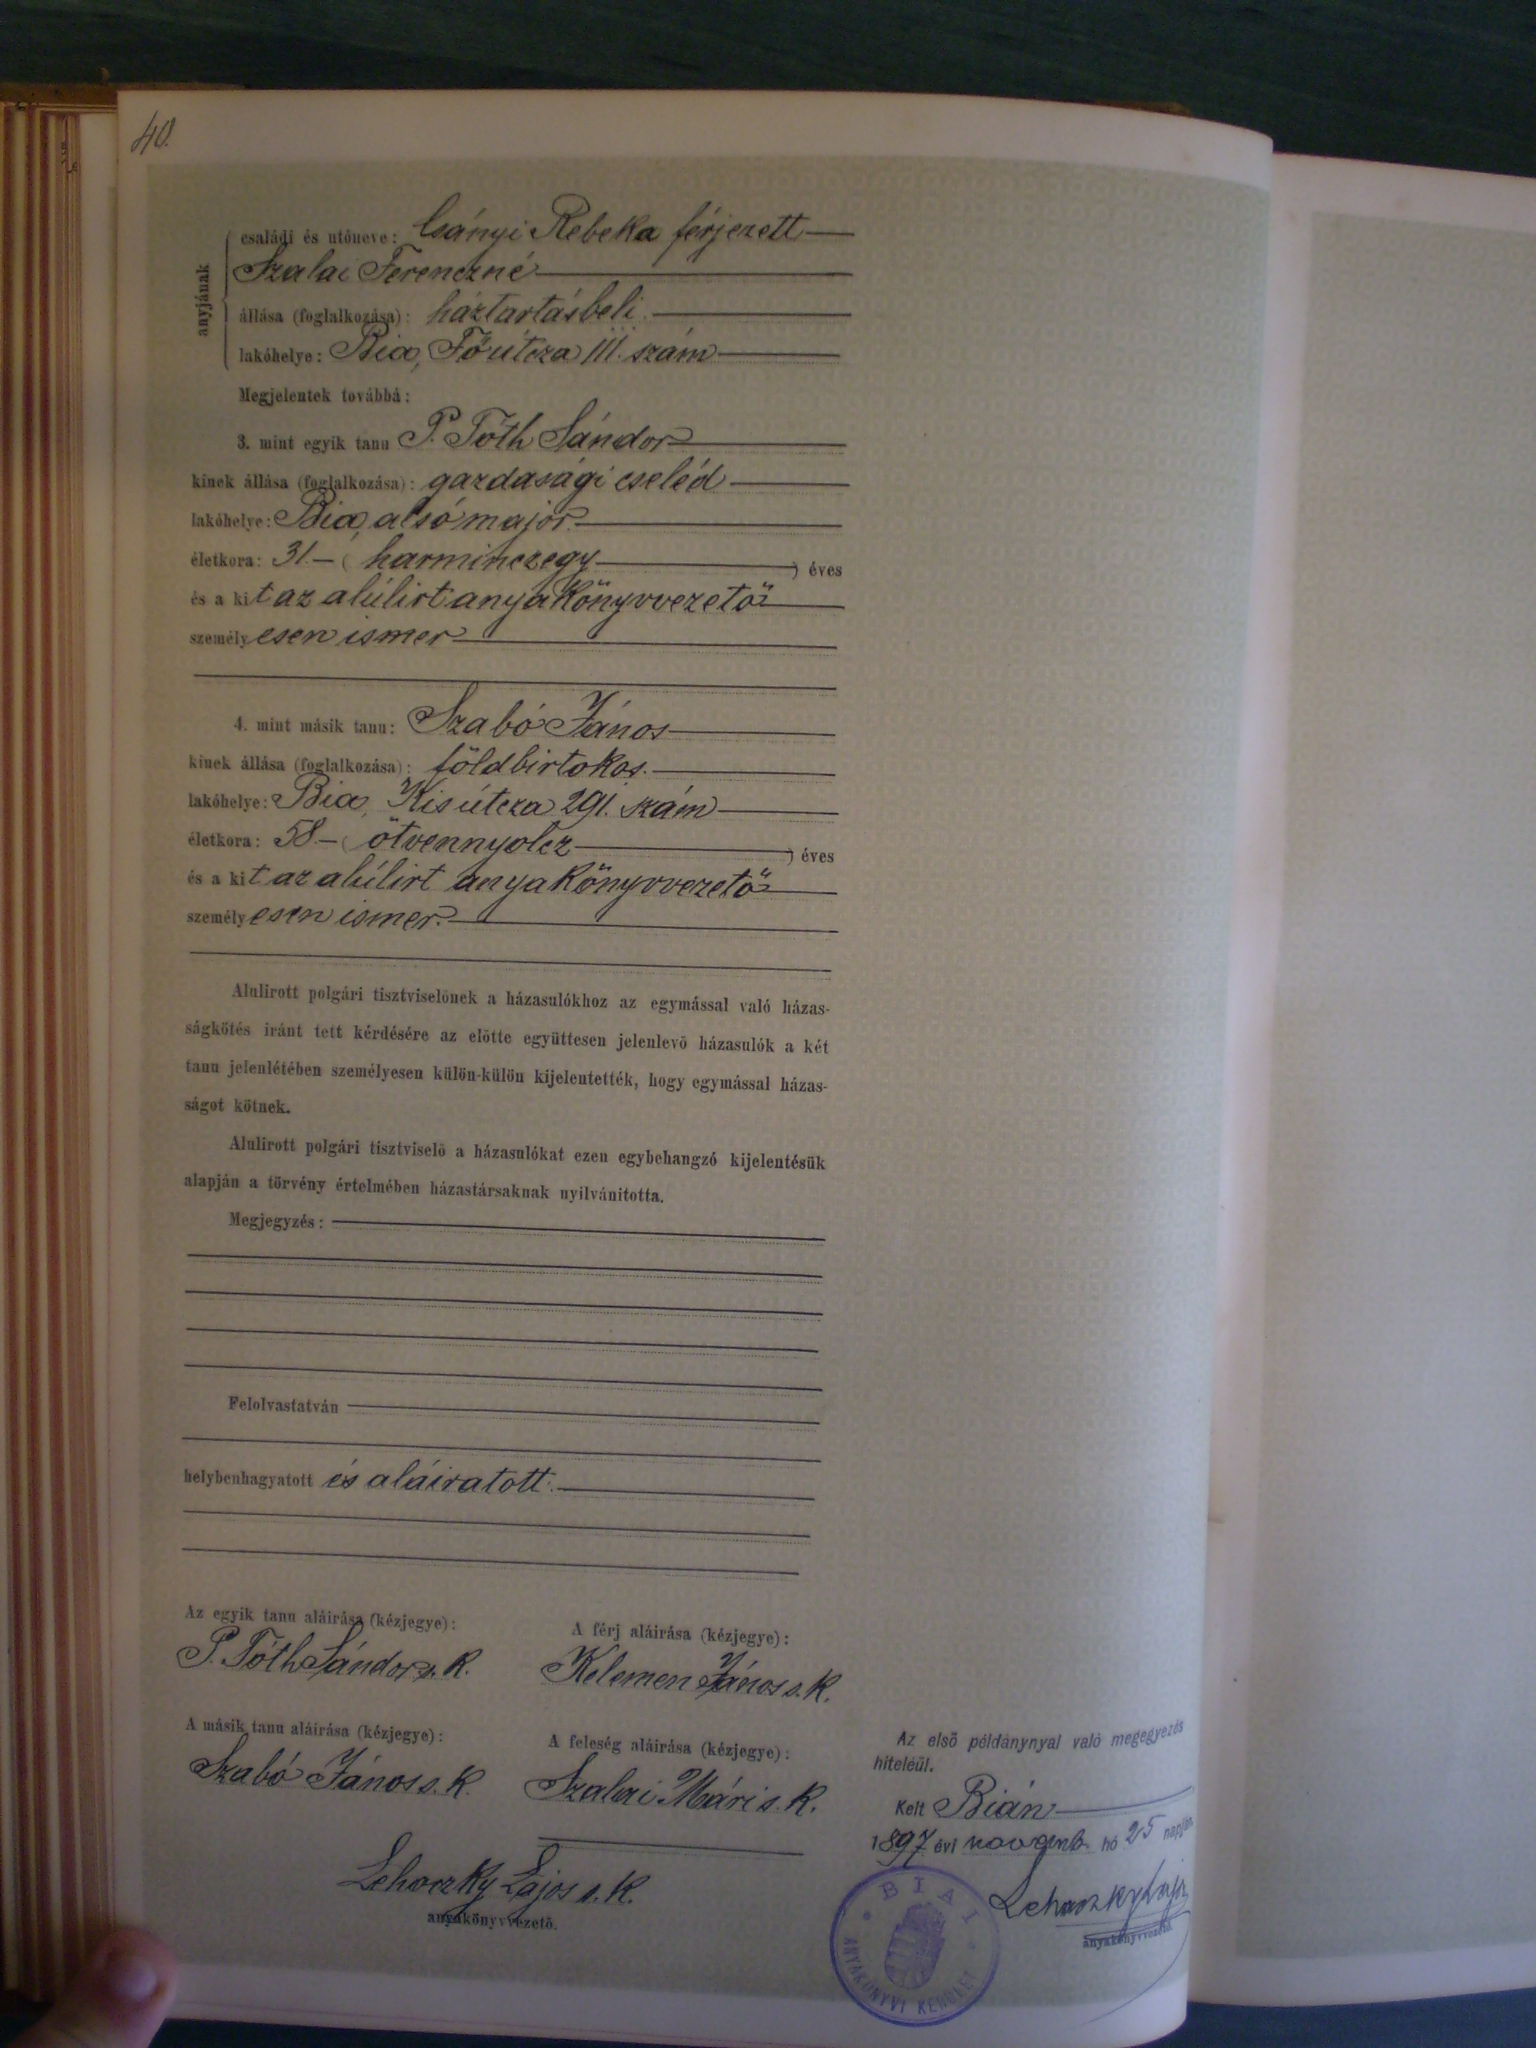 40.
anyjának
családi és utóneve: Csányi Rebeka férjezett
Szalai Ferenczné
állása (foglalkozása): háztartásbeli.
lakóhelye: Bia, Főútcza 111. szám
Megjelentek továbbá:
3. mint egyik tanu P. Tóth Sándor
kinek állása (foglalkozása): gazdasági cseléd
lakóhelye: Bia, alsómajor
életkora: 31 – ( harminczegy ) éves
és a kit az alúlirt anyakönyvvezető
személyesen ismer
4. mint másik tanu: Szabó János
kinek állása (foglalkozása): földbirtokos.
lakóhelye: Bia, Kisútcza 291. szám
életkora: 58 – ( ötvennyolcz ) éves
és a kit az alúlirt anyakönyvvezető
személyesen ismer.
Alulirott polgári tisztviselönek a házasulókhoz az egymással való házas-
ságkötés iránt tett kérdésére az elötte együttesen jelenlevö házasulók a két
tanu jelenlétében személyesen külön-külön kijelentették, hogy egymással házas-
ságot kötnek.
Alulirott polgári tisztviselö a házasulókat ezen egybehangzó kijelentésük
alapján a törvény értelmében házastársaknak nyilvánitotta.
Megjegyzés:
Felolvastatván
helybenhagyatott és aláiratott.
Az egyik tanu aláirása (kézjegye):
P. Tóth Sándor s. k.
A férj aláirása (kézjegye):
Kelemen János s. k.
A másik tanu aláirása (kézjegye):
Szabó János s. k.
A feleség aláirása (kézjegye):
Szalai Mári s. k.
Lehoczky Lajos s. k.
anyakönyvvezetö.
Az elsö példánynyal való megegyezés
hiteléül.
Kelt Bián
1897 évi novemb. hó 25 napján
Lehoczky Lajos
anyakönyvvezetö.
BIAI
ANYAKÖNYVI KERÜLET